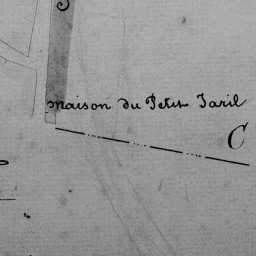 maison du Petit Jaril
C